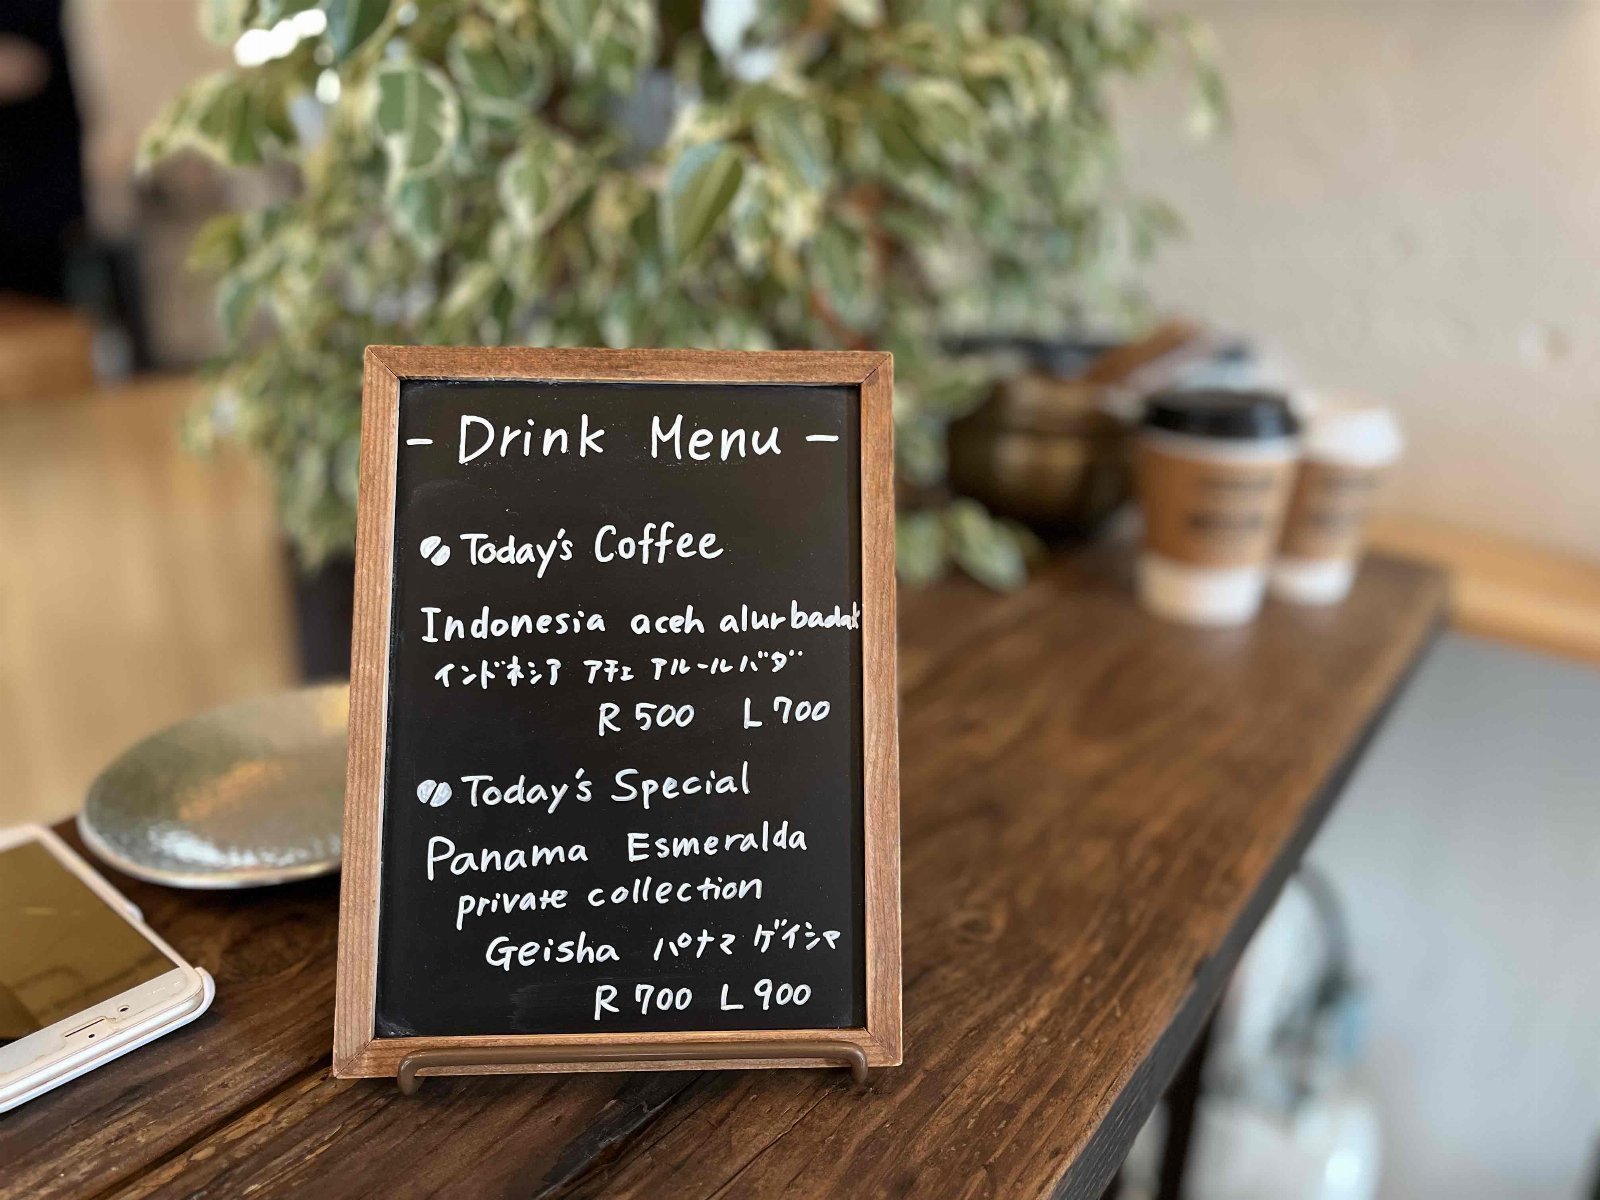 - Drink Menu -
Today's Coffee
Indonesia aceh alur badak
インドネシア アチェ アルールバダ
R 500 L 700
Today's Special
Panama Esmeralda
private collection
Geisha パナマ ゲイシャ
R 700 L 900